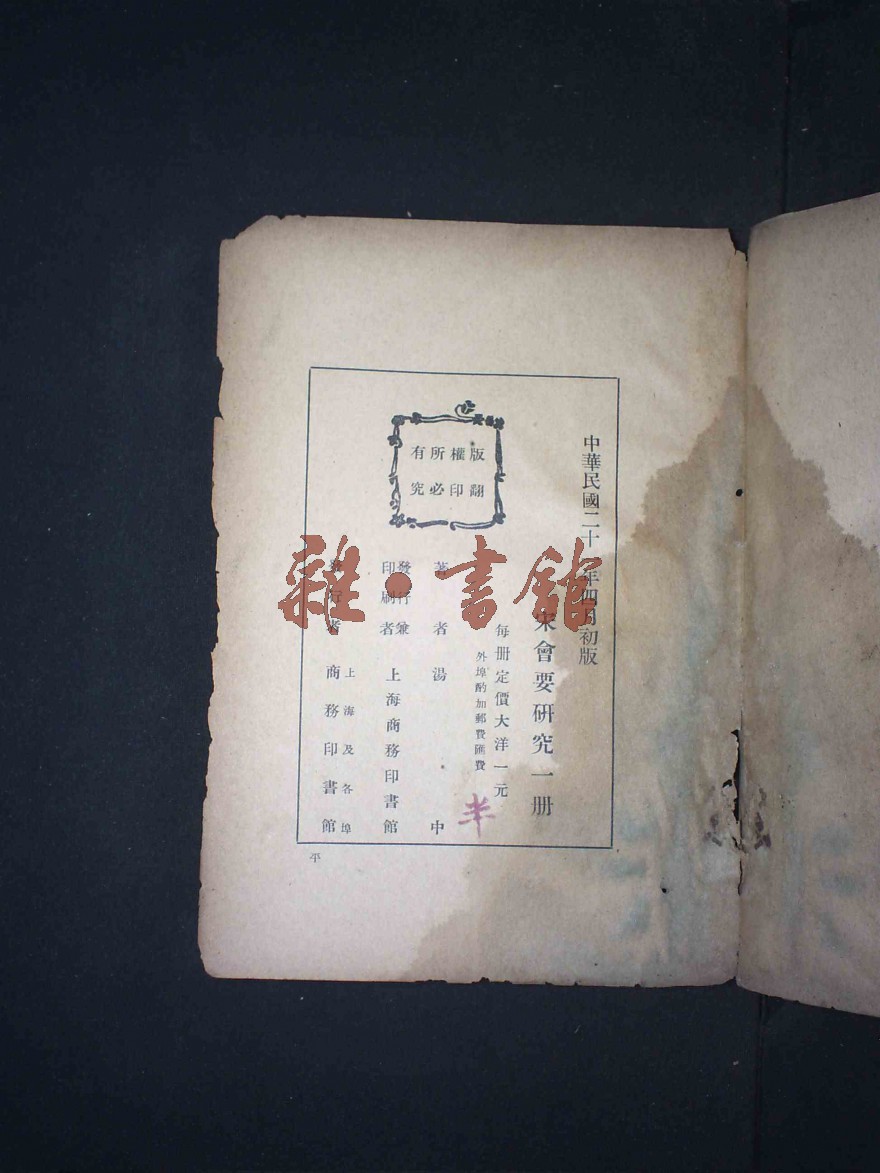 中華民國二十 年四月初版
宋會要研究一册
每册定價大洋一元
外埠酌加郵費匯費
半
版權所有
翻印必究
著者湯中
發行兼
印刷者
上海商務印書館
發行者
上海及各埠
商務印書館
平
雜·書館